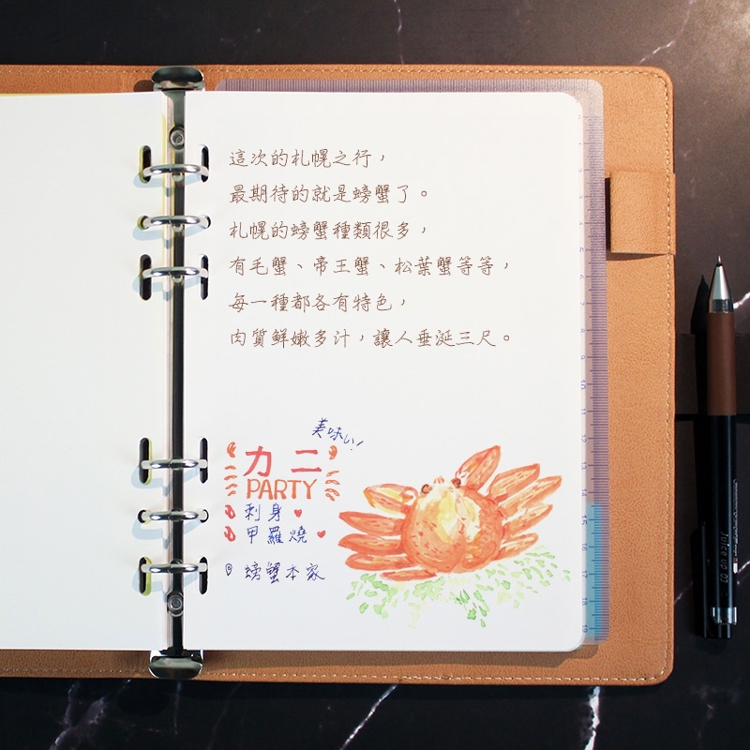 這次的札幌之行，
最期待的就是螃蟹了。
札幌的螃蟹種類很多，
有毛蟹、帝王蟹、松葉蟹等等，
每一種都各有特色，
肉質鮮嫩多汁，讓人垂涎三尺。
美味い！
カニ
PARTY
刺身
甲羅燒
螃蟹本家
Juice up 03